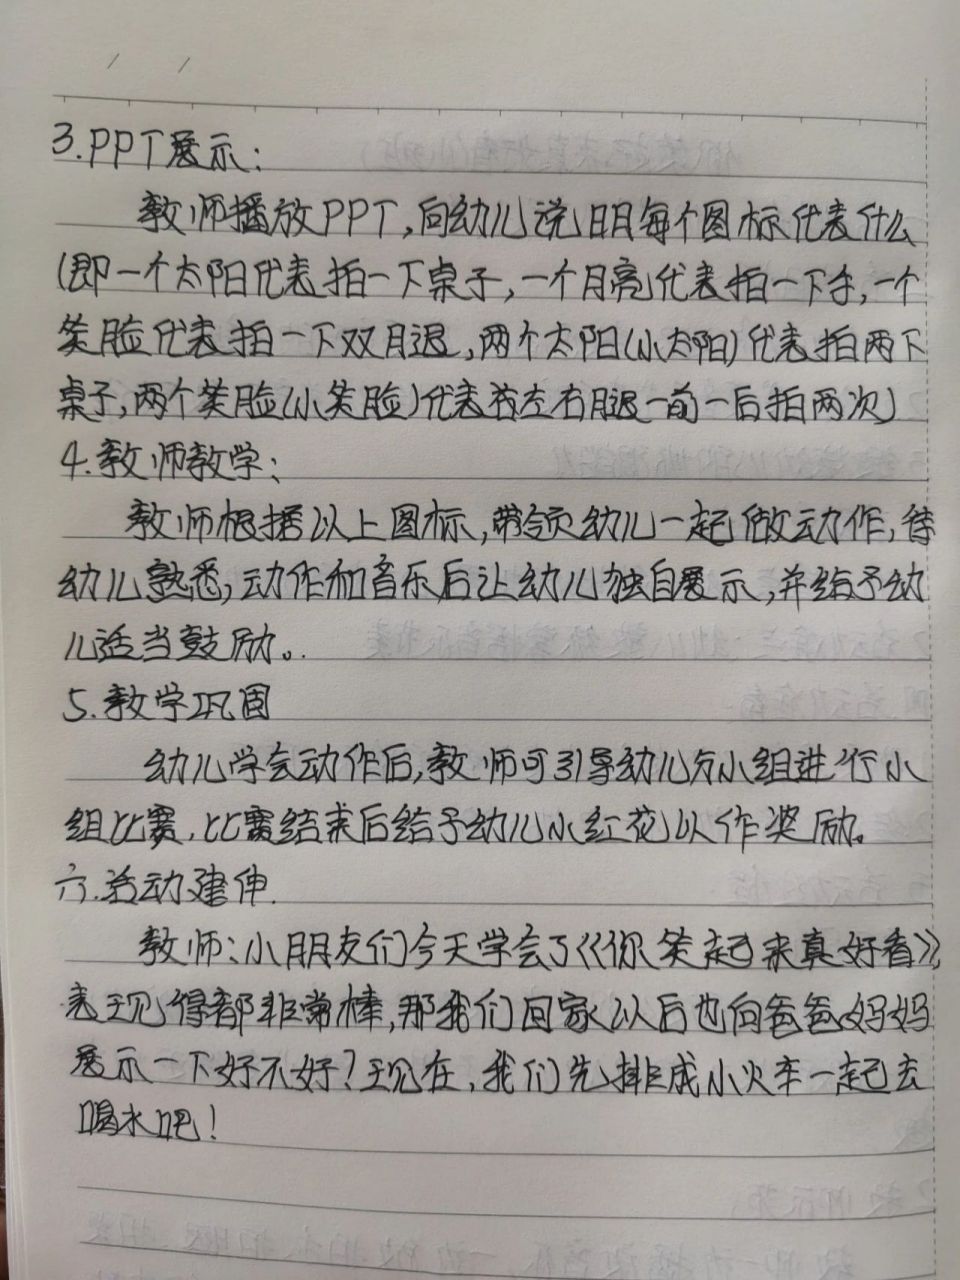 3.PPT展示：
教师播放PPT,向幼儿说明每个图标代表什么
(即一个太阳代表拍一下桌子,一个月亮代表拍一下手,一个
笑脸代表拍一下双腿,两个太阳(小太阳)代表拍两下
桌子,两个笑脸(小笑脸)代表在左右腿一前一后拍两次)
4.教师教学：
教师根据以上图标,带领幼儿一起做动作,待
幼儿熟悉,动作和音乐后让幼儿独自展示,并给予幼
儿适当鼓励。.
5.教学巩固
幼儿学会动作后,教师可引导幼儿分小组进行小
组比赛,比赛结束后给予幼儿小红花以作奖励。
六.活动建伸.
教师:小朋友们今天学会了《你笑起来真好看》,
表现得都非常棒,那我们回家以后也向爸爸妈妈
展示一下好不好?现在,我们先排成小火车一起去
喝水吧!